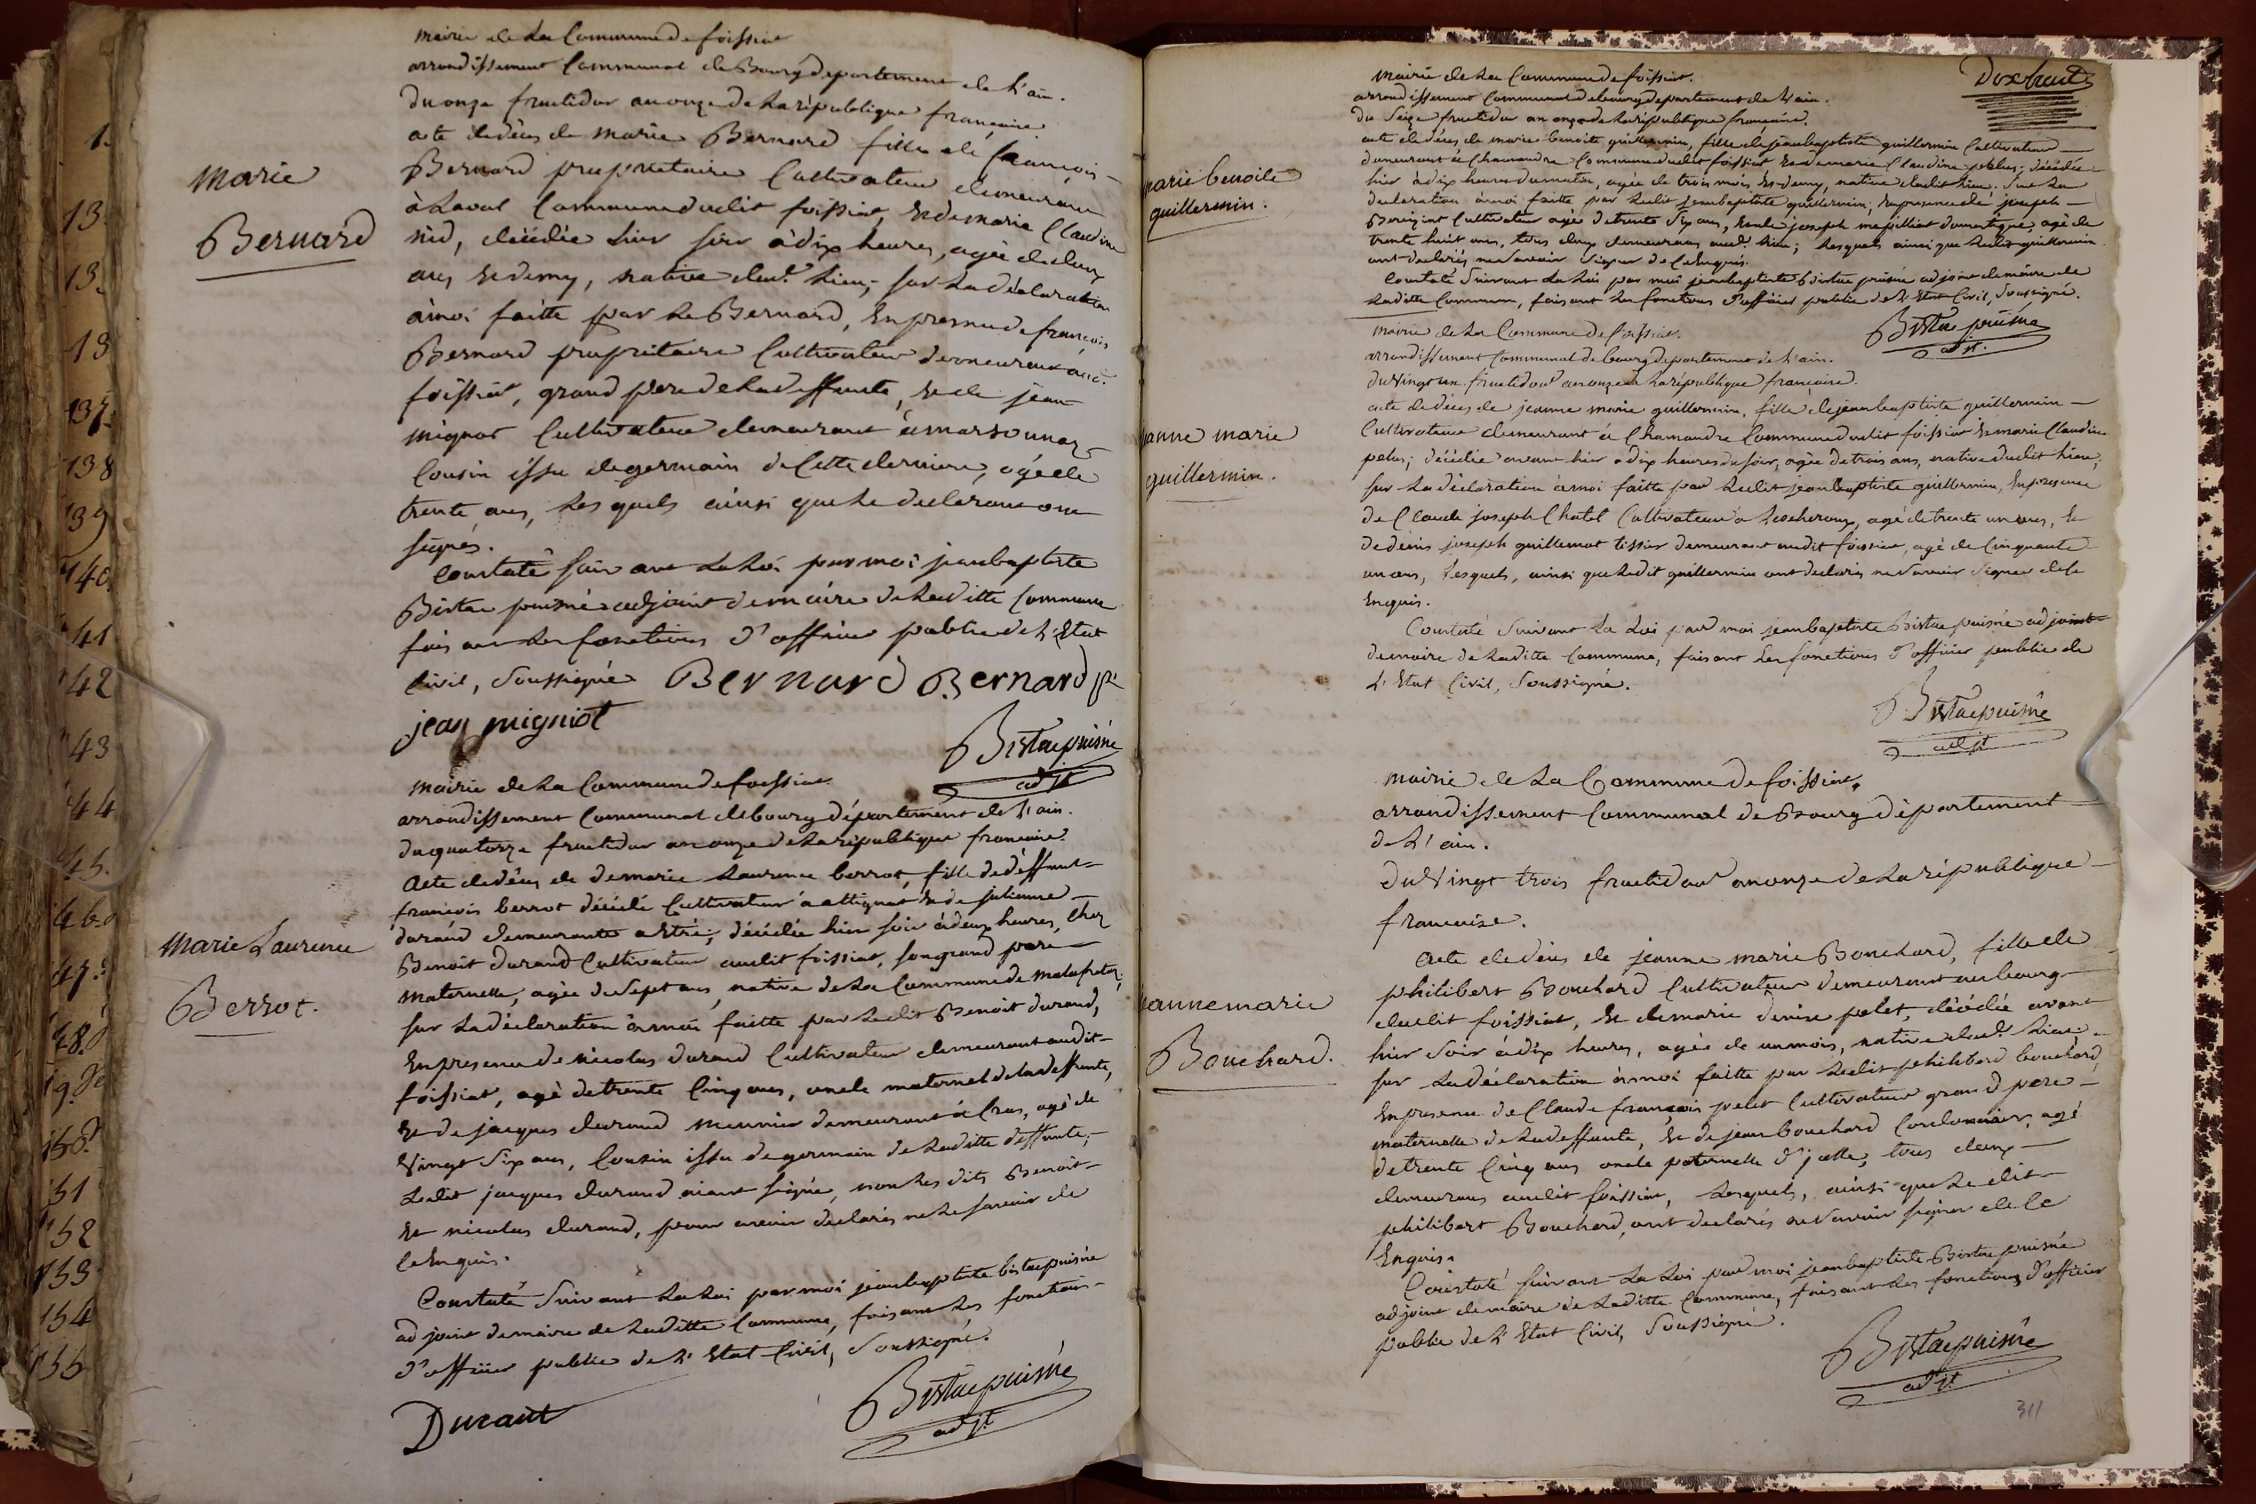 mairie de La Commune de foissiat
arrondissement Communal de Bourg departement de L'ain.
Du onze fructidor an onze de La république francaise.
acte de décés de marie Bernard fille de francois
Bernard proprietaire Cultivateur demeurant
à Laval Commune dudit foissiat, Et de marie Claudine
nid, décédée hier soir à dix heures, agée de deux
ans Et demy, native dud.t Lieu; sur La déclaration
à moi faitte par Le Bernard, En presence de francois
Bernard proprietaire Cultivateur demeurant aud.t
foissiat, grand pere de La deffunte, Et de jean
mignot Cultivateur demeurant à marsonnaz
Cousin issu de germain de Cette derniere, agé de
trente ans, Les quels ainsi que Le declarant ont
signés.
Constaté suivant La Loi par moi jean baptiste
Bistac puisné adjoint de maire de Laditte Commune
faisant Les fonctions d'officier public de L'Etat
Civil, Soussigné Bernard Bernard
jean migniot
Bistac puisné
adjt
Marie
Bernard
mairie de La Commune de foissiat
arrondissement Communal de bourg département de L'ain.
du quatorze fructidor an onze de La république francaise
Acte de décés de de marie Laurence berrot, fille de déffunt
francois berrot décédé Cultivateur à attignat Et de julienne
durand demeurante à Etré; décédée hier soir à deux heures, Chez
Benoit Durand Cultivateur audit foissiat, son grand pere
maternelle, agée de Sept ans, native de La Commune de malafretaz;
sur La déclaration à moi faitte par Ledit Benoit durand,
En presence de nicolas durand Cultivateur demeurant audit
foissiat, agé de trente Cinq ans, oncle maternel de La deffunte,
Et de jacques durand meunier demeurant à Cras, agé de
Vingt Six ans, Cousin issu de germain de Laditte deffunte;
Ledit jacques durand aiant signé, non Les dits Benoit
Et nicolas durand, pour avoir declarés ne Le savoir de
Ce Enquis.
Constaté Suivant La Loi par moi jean baptiste bistac puisné
adjoint de maire de Laditte Commune, faisant Les fonctions
d'officier public de L'Etat Civil, Soussigné.
Durant
Bistac puisné
adjt
Marie Laurence
Berrot.
Dixhuit
mairie de La Commune de foissiat.
arrondissement Communal de bourg departement de L'ain.
du Seize fructidor an onze de La republique francaise.
acte de décés de marie benoite guillermin, fille de jean baptiste guillermin Cultivateur
demeurant à Chamandre Commune dudit foissiat Et de marie Claudine pelus; décédée
hier à dix heures du matin, agée de trois mois Et demy, native dudit Lieu; Sur La
declaration à moi faitte par Ledit jean baptiste guillermin; En presence de joseph
Cultivateur agé de trente Six ans, Et de joseph domestique agé de
trente huit ans, tous deux demeurans aud.t Lieu; Lesquels ainsi que Ledit guillermin
ont declarés ne Savoir Signer de Ce Enquis.
Constaté Suivant La Loi par moi jean baptiste Bistac puisné adjoint de maire de
Laditte Commune, faisant Les fonctions d'officier public de L'Etat Civil, Soussigné.
Bistac puisné
adjt.
marie benoite
guillermin.
mairie de La Commune de foissiat.
arrondissement Communal de bourg departement de L'ain.
du Vingt un fructidor an onze de La république francaise.
acte de décés de jeanne marie guillermin, fille de jean baptiste guillermin
Cultivateur demeurant à Chamandre Commune dudit foissiat Et marie Claudine
pelus; décédée avant hier à dix heures du soir, agée de trois ans, native dudit Lieu;
sur La déclaration à moi faitte par Ledit jean baptiste guillermin, En presence
de Claude joseph Chatel Cultivateur à Lescheroux, agé de trente un ans, Et
de denis joseph guillemot tissier demeurant audit foissiat, agé de Cinquante
un ans, Lesquels, ainsi que Ledit guillermin ont declarés ne Savoir Signer de Ce
Enquis.
Constaté Suivant La Loi par moi jean baptiste Bistac puisné adjoint
de maire de Laditte Commune, faisant Les fonctions d'officier public de
L'Etat Civil, Soussigné.
Bistac puisné
adjt
anne marie
guillermin.
mairie de La Commune de foissiat.
arrondissement Communal de Bourg département
de L'ain.
du Vingt trois fructidor an onze de La république
francaise.
Acte de décés de jeanne marie Bouchard, fille de
philibert Bouchard Cultivateur demeurant au bourg
dudit foissiat, Et de marie denise pelet, décédée avant
hier soir à dix heures, agée de un mois, native dud.t Lieu.
sur La déclaration à moi faitte par Ledit philibert bouchard
En presence de Claude francois pelet Cultivateur grand pere
maternelle de La deffunte, Et de jean bouchard Cordonnier, agé
de trente Cinq ans oncle paternelle d'jcelle, tous deux
demeurans audit foissiat, Lesquels, ainsi que Le dit
philibert Bouchard, ont declarés ne Savoir signer de Ce
Enquis.
Constaté suivant La Loi par moi jean baptiste Bistac puisné
adjoint de maire de Laditte Commune, faisant Les fonctions d'officier
public de L'Etat Civil, Soussigné.
Bistac puisné
adjt
annemarie
Bouchard.
311
1.
13.
13.
13
137.
138
139
140.
41
42
43
44
45.
46.
47.
48.
49.
150.
151
152
153
154
155